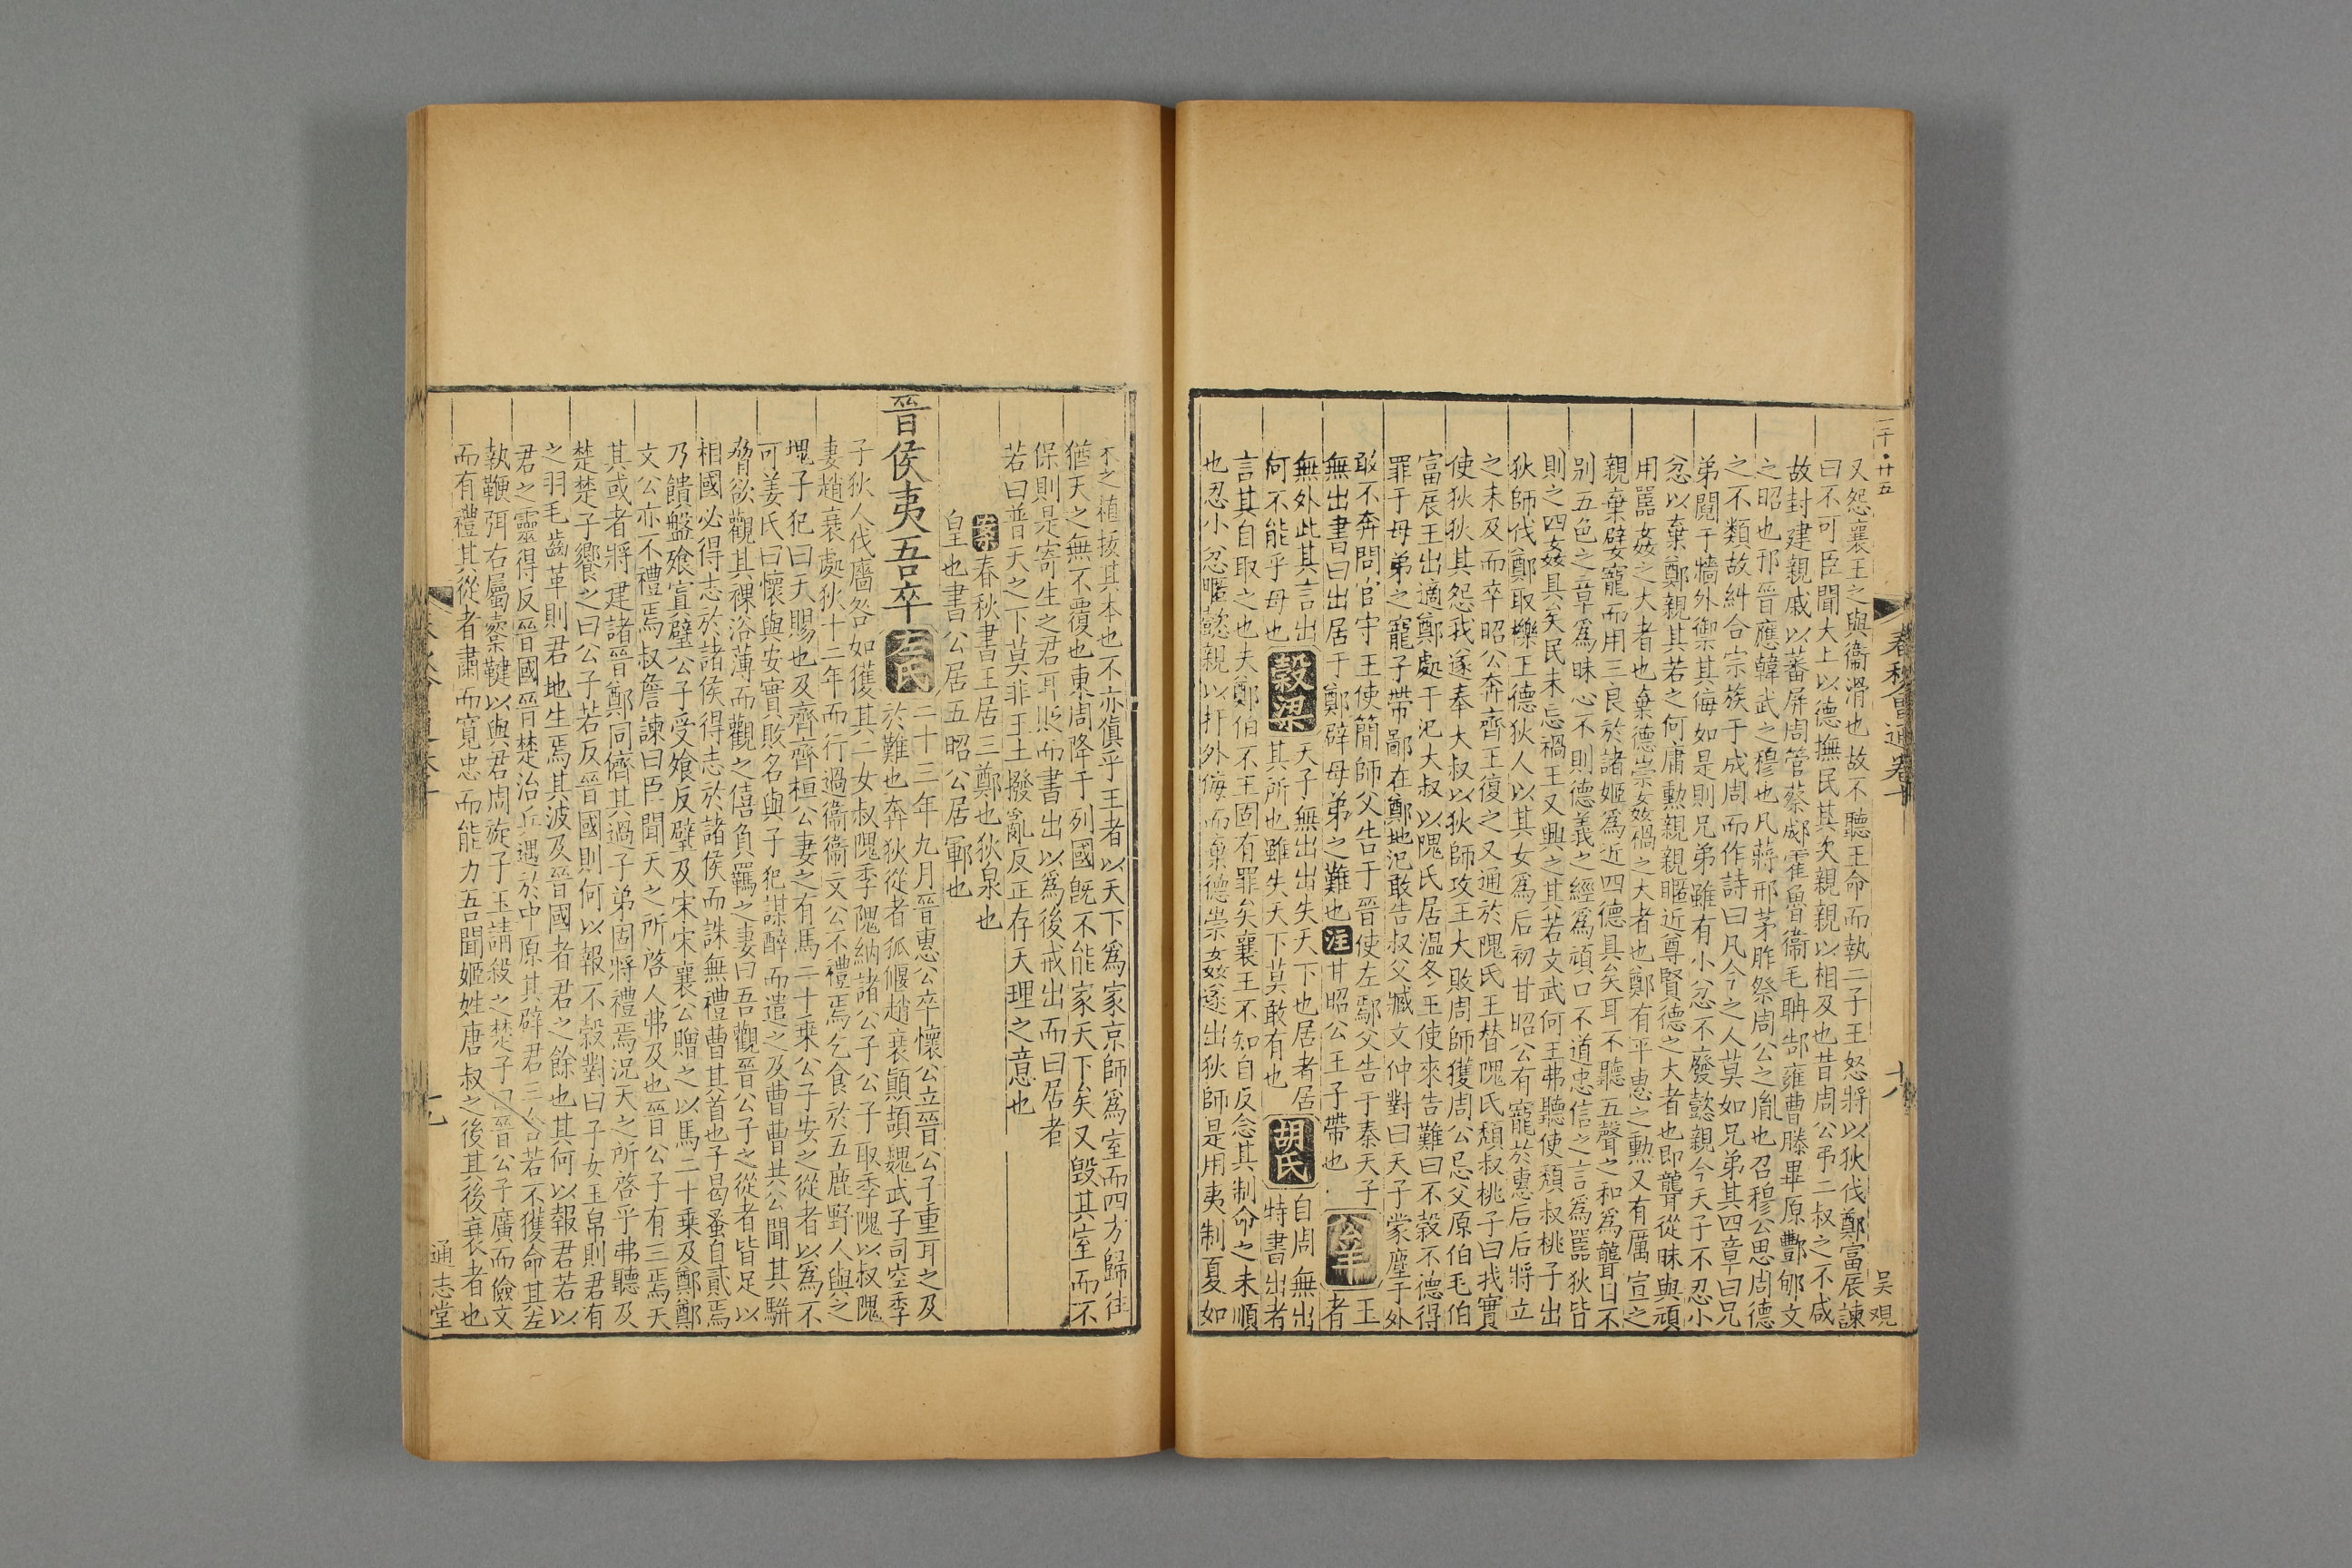 一千●廿五
春秋會通卷十
十八
吴覌
又怨襄王之與衞滑也故不聽王命而執二子王怒將以狄伐鄭富辰諫
曰不可臣聞大上以德撫民其次親親以相及也昔周公弔二叔之不咸
故封建親戚以蕃屏周管蔡郕霍魯衞毛聃郜雍曹滕畢原酆郇文
之昭也邘晉應韓武之穆也凡蔣邢茅胙祭周公之胤也召穆公思周德
之不類故糾合宗族于成周而作詩曰凡今之人莫如兄弟其四章曰兄
弟鬩于牆外禦其侮如是則兄弟雖有小忿不廢懿親今天子不忍小
忿以棄鄭親其若之何庸勲親親暱近尊賢德之大者也即聾從昧與頑
用嚚姦之大者也棄德崇姦禍之大者也鄭有平惠之勲又有厲宣之
親棄嬖寵而用三良於諸姬爲近四德具矣耳不聽五聲之和爲聾目不
别五色之章爲昧心不則德義之經爲頑口不道忠信之言爲嚚狄皆
則之四姦具矣民未忘禍王又興之其若文武何王弗聽使頽叔桃子出
狄師伐鄭取櫟王德狄人以其女爲后初甘昭公有寵於惠后后將立
之未及而卒昭公奔齊王復之又通於隗氏王替隗氏頽叔桃子曰我實
使狄狄其怨我遂奉大叔以狄師攻王大敗周師獲周公忌父原伯毛伯
富辰王出適鄭處于汜大叔以隗氏居温冬王使來告難曰不穀不德得
罪于母弟之寵子帶鄙在鄭地汜敢告叔父臧文仲對曰天子蒙塵于外
敢不奔問官守王使簡師父告于晉使左鄢父告于秦天子
無出書曰出居于鄭辟母弟之難也注甘昭公王子帶也公羊王者
無外此其言出何不能乎母也
穀梁天子無出出失天下也居者居其所也雖失天下莫敢有也
胡氏自周無出特書出者
言其自取之也夫鄭伯不王固有罪矣襄王不知自反念其制命之未順
也忍小忿暱懿親以扞外侮而棄德崇姦遂出狄師是用夷制夏如
木之植拔其本也不亦傎乎王者以天下爲家京師爲室而四方歸往
猶天之無不覆也東周降于列國旣不能家天下矣又毁其室而不
保則是寄生之君耳貶而書出以爲後戒出而曰居者
若曰普天之下莫非王土撥亂反正存天理之意也
案春秋書王居三鄭也狄泉也
皇也書公居五昭公居鄆也
晉侯夷吾卒左氏二十三年九月晉惠公卒懷公立晉公子重耳之及
於難也奔狄從者狐偃趙衰顛頡魏武子司空季
子狄人伐廧咎如獲其二女叔隗季隗納諸公子公子取季隗以叔隗
妻趙衰處狄十二年而行過衞衞文公不禮焉乞食於五鹿野人與之
塊子犯曰天賜也及齊齊桓公妻之有馬二十乘公子安之從者以爲不
可姜氏曰懷與安實敗名與子犯謀醉而遣之及曹曹共公聞其駢
脅欲觀其裸浴薄而觀之僖負羈之妻曰吾觀晉公子之從者皆足以
相國必得志於諸侯得志於諸侯而誅無禮曹其首也子曷蚤自貳焉
乃饋盤飧寘璧公子受飧反璧及宋宋襄公贈之以馬二十乘及鄭鄭
文公亦不禮焉叔詹諫曰臣聞天之所啓人弗及也晉公子有三焉天
其或者將建諸晉鄭同儕其過子弟固將禮焉況天之所啓乎弗聽及
楚楚子饗之曰公子若反晉國則何以報不穀對曰子女玉帛則君有
之羽毛齒革則君地生焉其波及晉國者君之餘也其何以報君若以
君之靈得反晉國晉楚治兵遇於中原其辟君三舍若不獲命其左
執鞭弭右屬櫜鞬以與君周旋子玉請殺之楚子曰晉公子廣而儉文
而有禮其從者肅而寬忠而能力吾聞姬姓唐叔之後其後衰者也
十九
通志堂